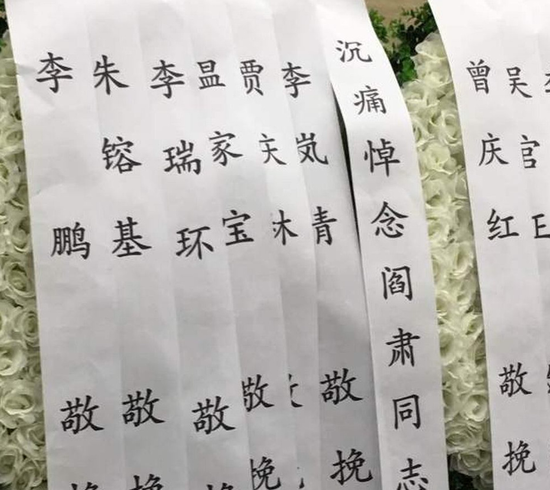 李鹏敬挽
朱镕基敬挽
李瑞环敬挽
温家宝敬挽
贾庆林敬
李岚清敬挽
沉痛悼念阎肃同志
曾庆红敬挽
吴官正